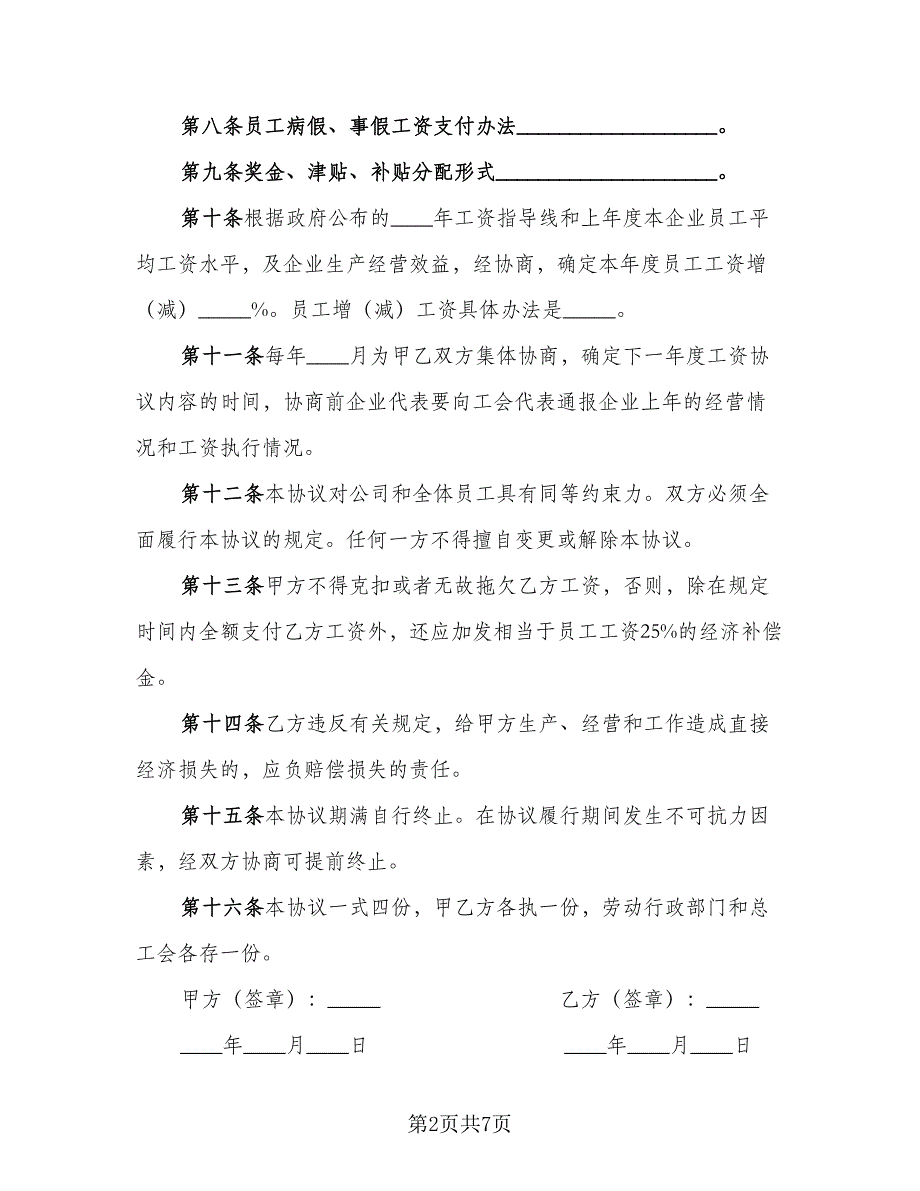 第八条员工病假、事假工资支付办法___________________。
第九条奖金、津贴、补贴分配形式_____________________。
第十条根据政府公布的____年工资指导线和上年度本企业员工平
均工资水平，及企业生产经营效益，经协商，确定本年度员工工资增
（减）_____%。员工增（减）工资具体办法是_____。
第十一条每年____月为甲乙双方集体协商，确定下一年度工资协
议内容的时间，协商前企业代表要向工会代表通报企业上年的经营情
况和工资执行情况。
第十二条本协议对公司和全体员工具有同等约束力。双方必须全
面履行本协议的规定。任何一方不得擅自变更或解除本协议。
第十三条甲方不得克扣或者无故拖欠乙方工资，否则，除在规定
时间内全额支付乙方工资外，还应加发相当于员工工资25%的经济补偿
金。
第十四条乙方违反有关规定，给甲方生产、经营和工作造成直接
经济损失的，应负赔偿损失的责任。
第十五条本协议期满自行终止。在协议履行期间发生不可抗力因
素，经双方协商可提前终止。
第十六条本协议一式四份，甲乙方各执一份，劳动行政部门和总
工会各存一份。
甲方（签章）：_____ 乙方（签章）：_____
____年____月____日 ____年____月____日
第2页共7页